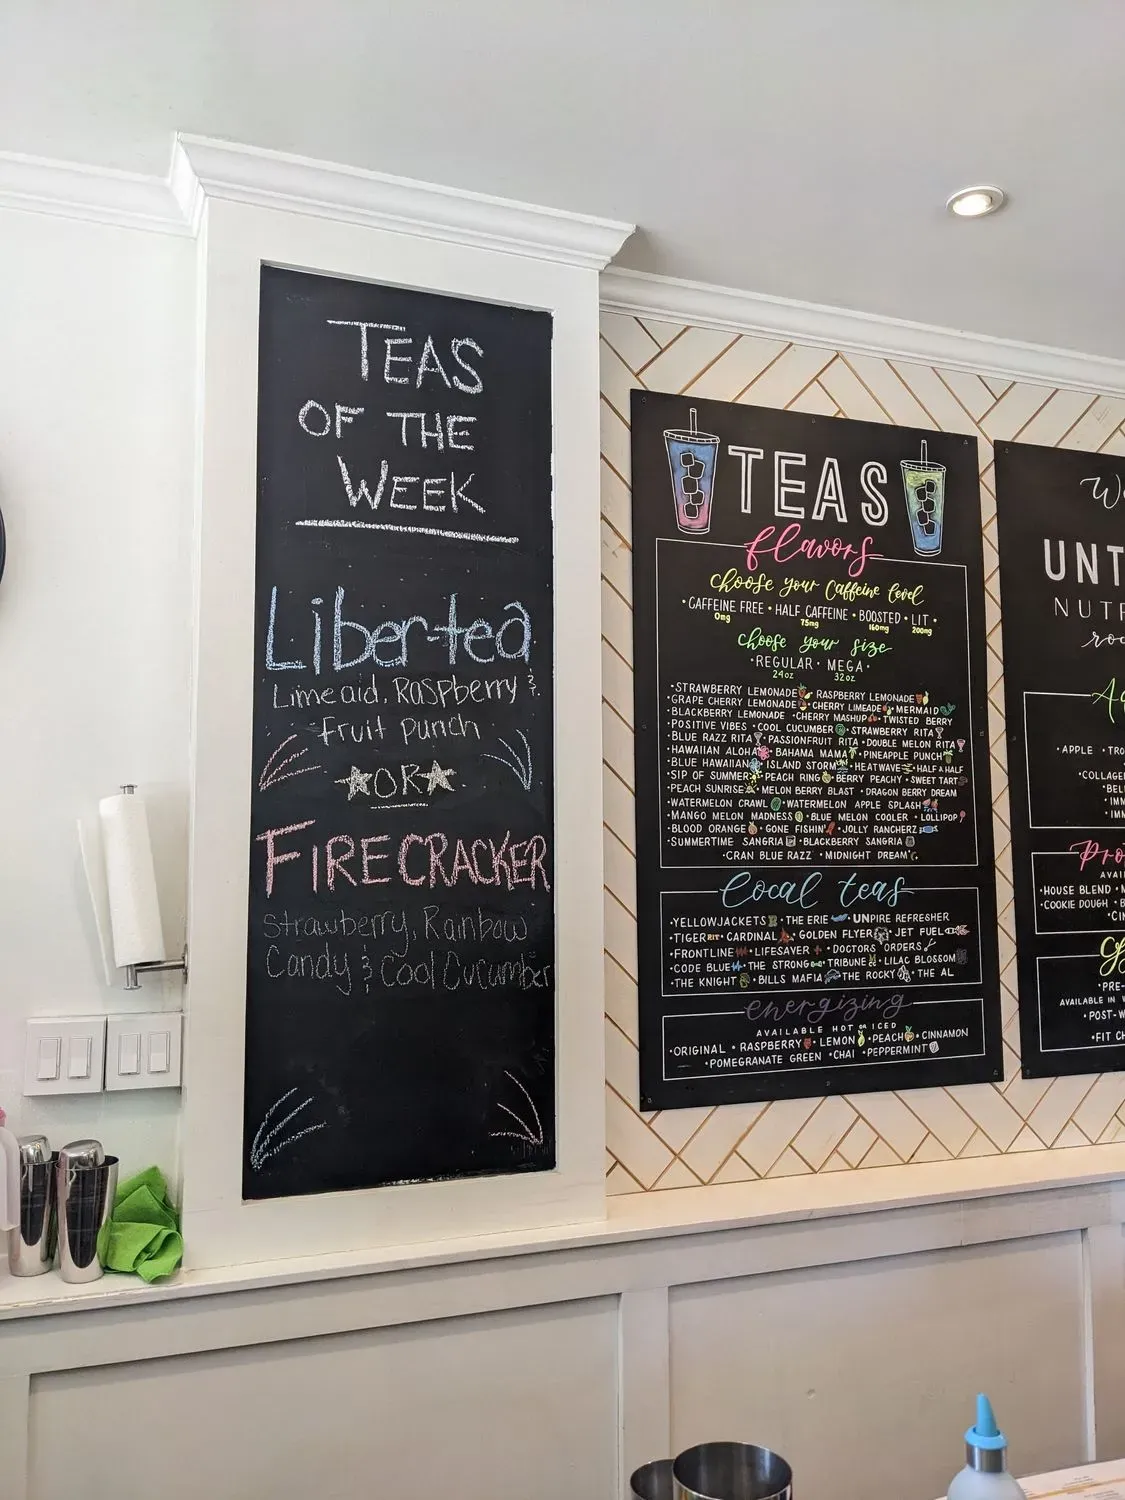 TEAS
OF THE
WEEK
Liber-tea
Limeaid, Raspberry &
Fruit punch
★OR★
FIRECRACKER
Strawberry, Rainbow
Candy & Cool Cucumber
TEAS
flavors
choose your Caffeine level
• CAFFEINE FREE • HALF CAFFEINE • BOOSTED • LIT •
0mg 75mg 160mg 200mg
choose your size
• REGULAR • MEGA •
24oz 32oz
• STRAWBERRY LEMONADE • RASPBERRY LEMONADE
• GRAPE CHERRY LEMONADE • CHERRY LIMEADE • MERMAID
• BLACKBERRY LEMONADE • CHERRY MASHUP • TWISTED BERRY
• POSITIVE VIBES • COOL CUCUMBER • STRAWBERRY RITA
• BLUE RAZZ RITA • PASSIONFRUIT RITA • DOUBLE MELON RITA
• HAWAIIAN ALOHA • BAHAMA MAMA • PINEAPPLE PUNCH
• BLUE HAWAIIAN • ISLAND STORM • HEATWAVE • HALF & HALF
• SIP OF SUMMER • PEACH RING • BERRY PEACHY • SWEET TART
• PEACH SUNRISE • MELON BERRY BLAST • DRAGON BERRY DREAM
• WATERMELON CRAWL • WATERMELON APPLE SPLASH
• MANGO MELON MADNESS • BLUE MELON COOLER • LOLLIPOP
• BLOOD ORANGE • GONE FISHIN' • JOLLY RANCHERZ
• SUMMERTIME SANGRIA • BLACKBERRY SANGRIA
• CRAN BLUE RAZZ • MIDNIGHT DREAM
local teas
• YELLOWJACKETS • THE ERIE • UNPIRE REFRESHER
• TIGER RIT • CARDINAL • GOLDEN FLYER • JET FUEL
• FRONTLINE • LIFESAVER • DOCTORS ORDERS
• CODE BLUE • THE STRONG • TRIBUNE • LILAC BLOSSOM
• THE KNIGHT • BILLS MAFIA • THE ROCKY • THE AL
energizing
AVAILABLE HOT OR ICED
• ORIGINAL • RASPBERRY • LEMON • PEACH • CINNAMON
• POMEGRANATE GREEN • CHAI • PEPPERMINT
UNT
NUTR
• APPLE
• COLLAGEN
• HOUSE BLEND •
COOKIE DOUGH •
AVAILABLE IN
• POST-W
• FIT CH